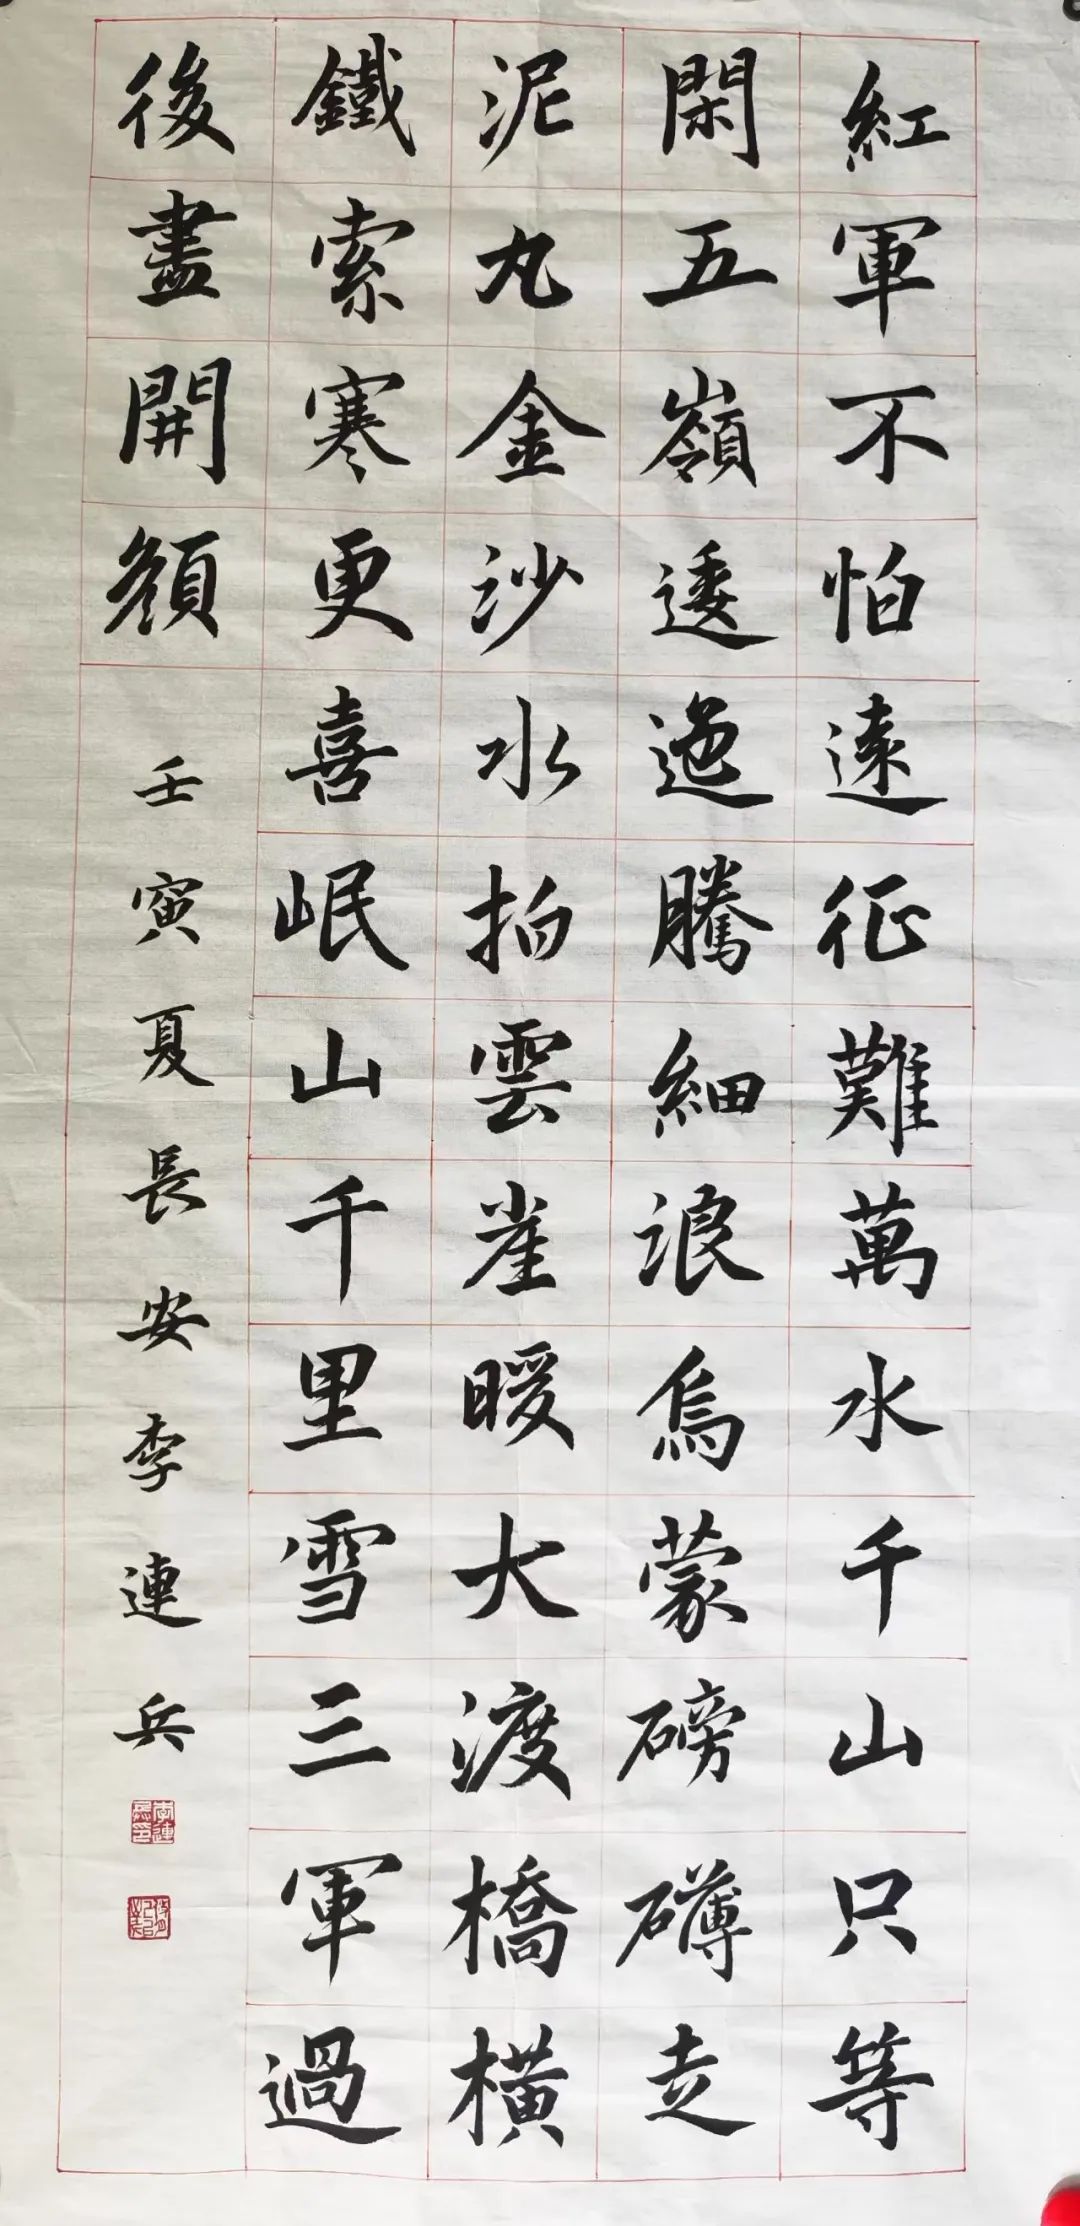 紅軍不怕遠征難萬水千山只等
閑五嶺逶迤騰細浪烏蒙磅礴走
泥丸金沙水拍雲崖暖大渡橋橫
鐵索寒更喜岷山千里雪三軍過
後盡開顏
壬寅夏長安李連兵
李連兵印